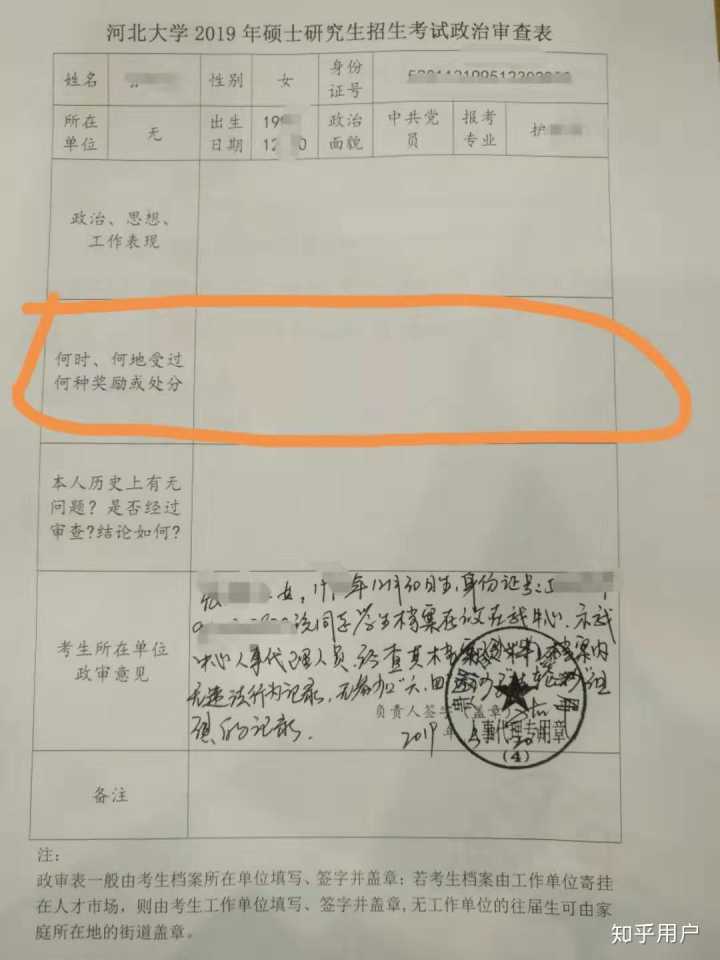 河北大学2019年硕士研究生招生考试政治审查表
姓名 性别 女 身份证号
所在单位 无 出生日期 政治面貌 中共党员 报考专业 护
政治、思想、
工作表现
何时、何地受过
何种奖励或处分
本人历史上有无
问题？是否经过
审查?结论如何?
考生所在单位
政审意见
女, 年12月30日生,身份证号:5
该同志学生档案存放在我中心,示我
中心人事代理人员,经查其档案 档案内
无违法行为记录,无参加"六.四" 组
织的记录.
负责人签字（盖章）
2019年
人事代理专用章
(4)
备注
注:
政审表一般由考生档案所在单位填写、签字并盖章；若考生档案由工作单位寄挂
在人才市场，则由考生工作单位填写、签字并盖章,无工作单位的往届生可由家
庭所在地的街道盖章。
知乎用户